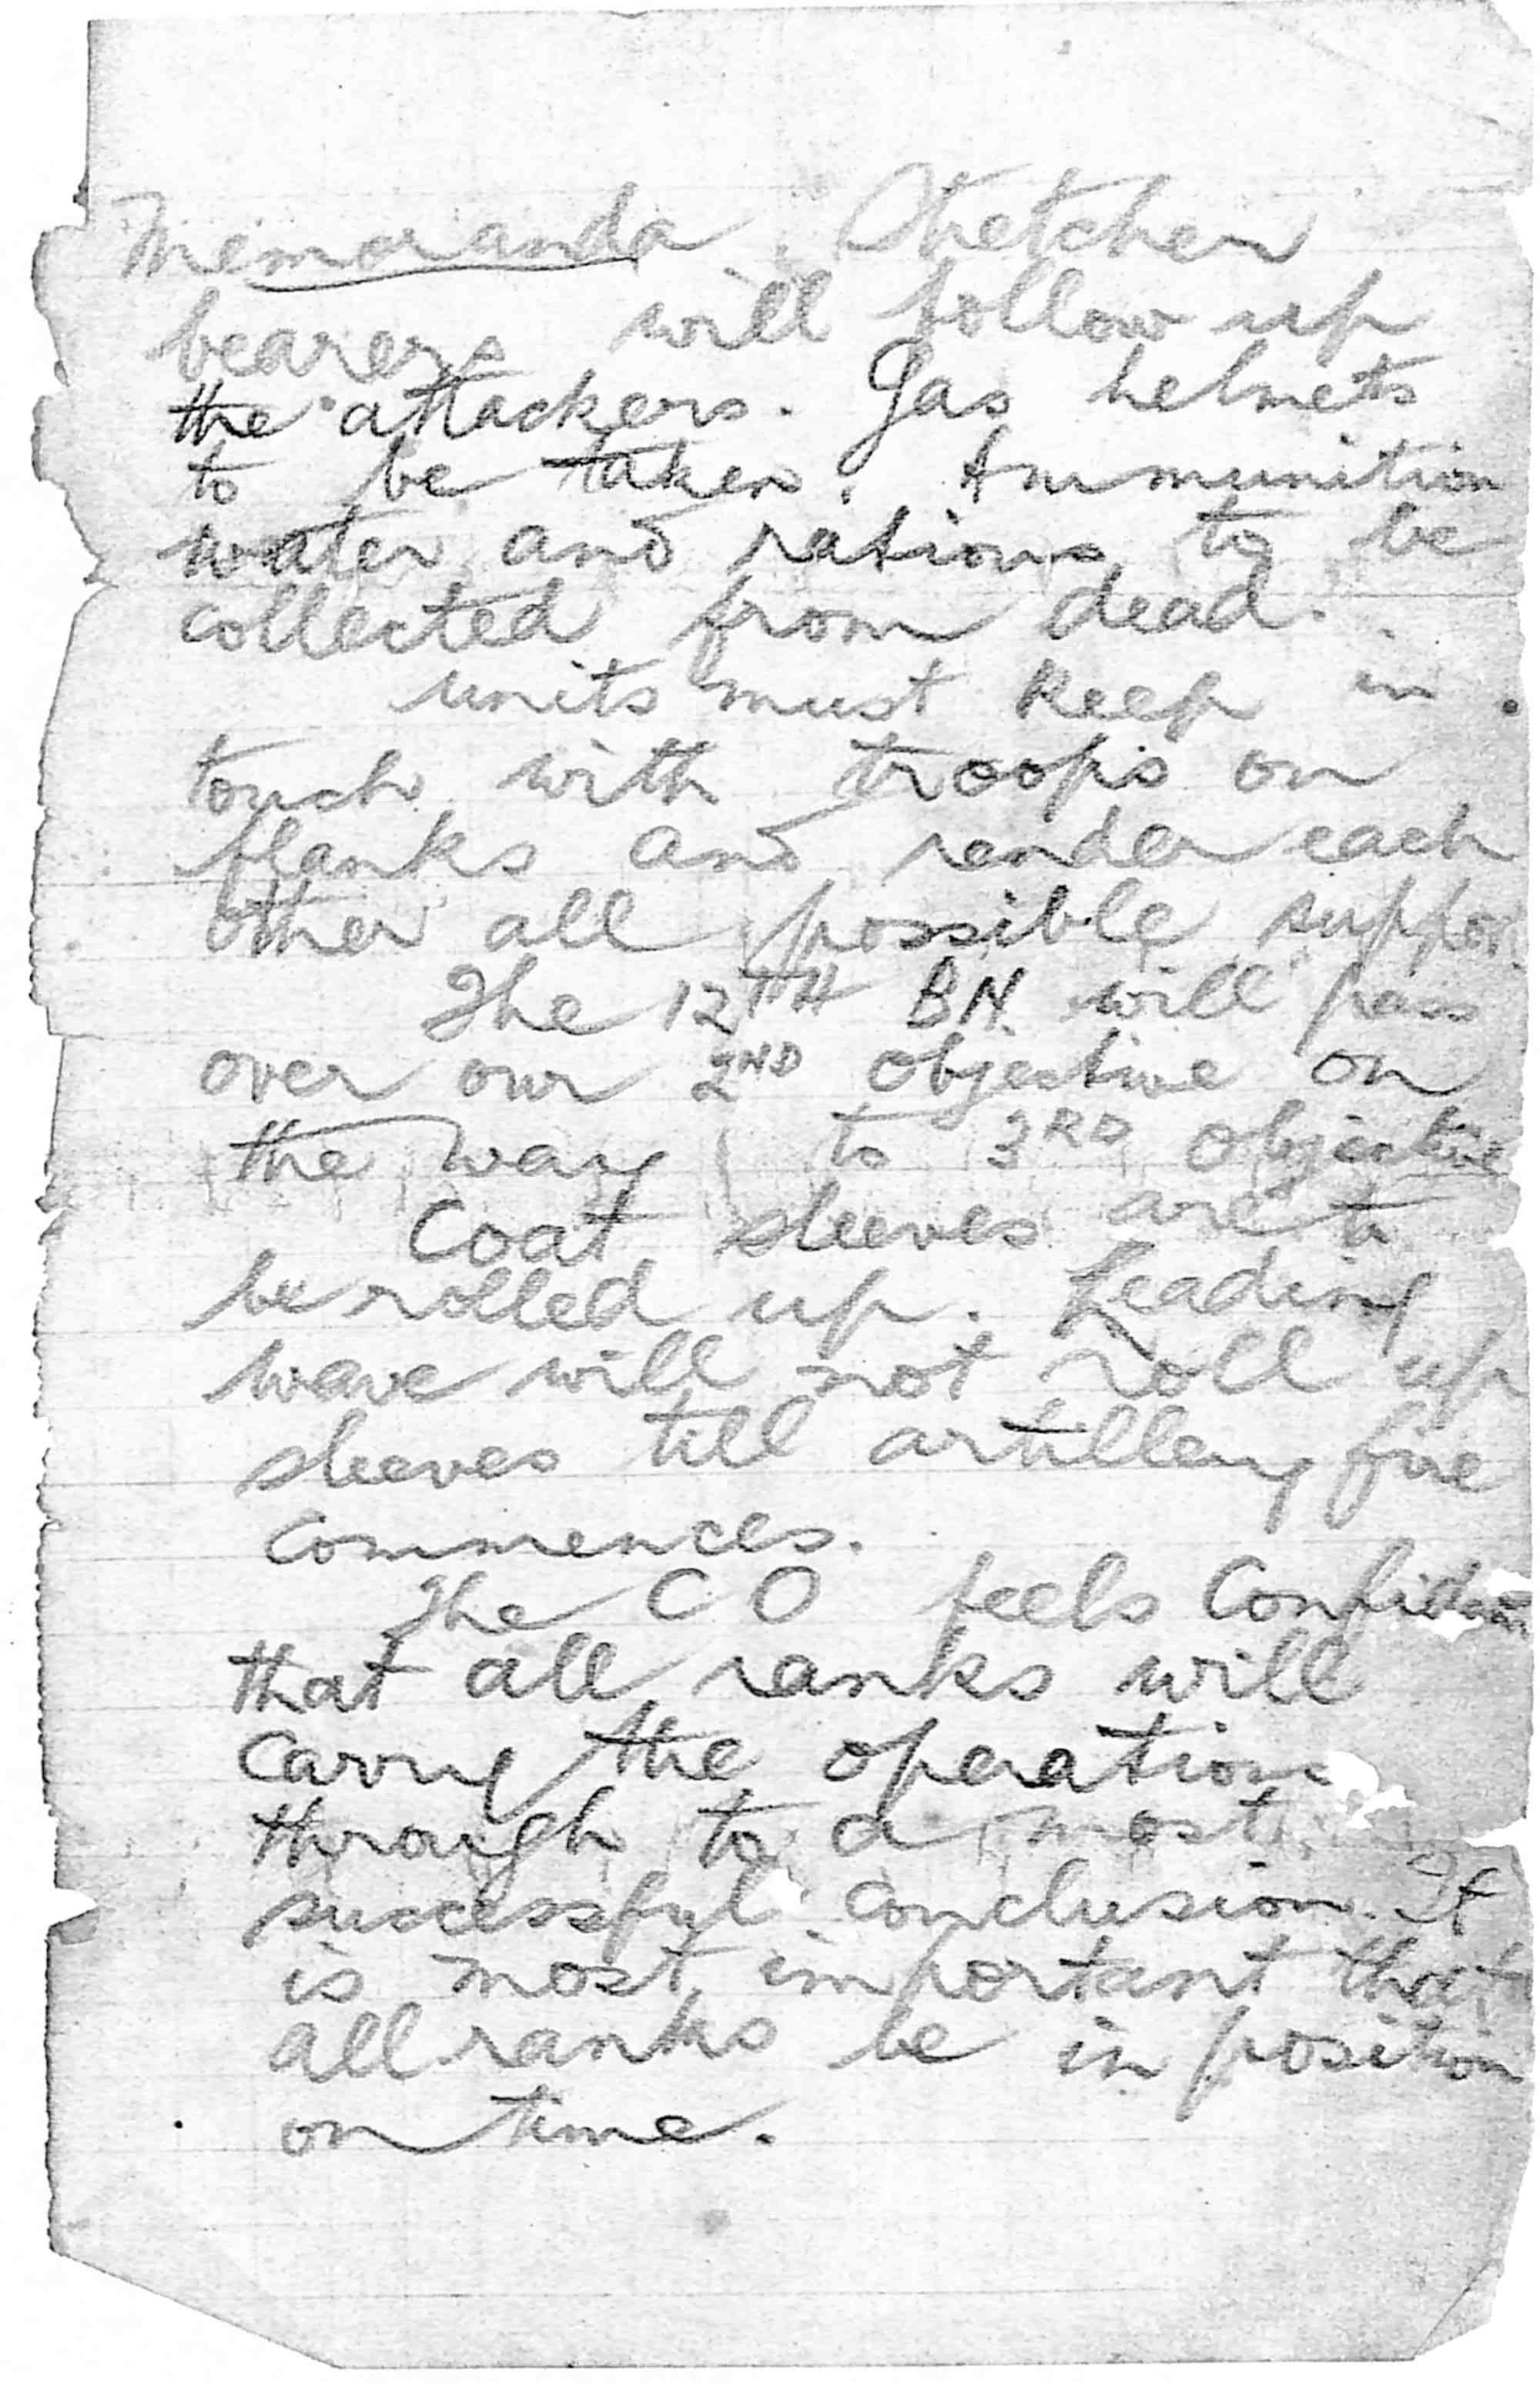 Memoranda. Stretcher
bearers will follow up
the attackers. Gas helmets
to be taken. Ammunition
water and rations to be
collected from dead.
units must keep in
touch with troops on
flanks and render each
other all possible suppor
The 12TH BN. will pass
over our 2ND objective on
the way to 3RD objective
Coat sleeves are to
be rolled up. Leading
wave will not roll up
sleeves till artillery fire
commences.
The C O feels confident
that all ranks will
carry the operation
through to a most
successful conclusion. It
is most important that
all ranks be in position
on time.